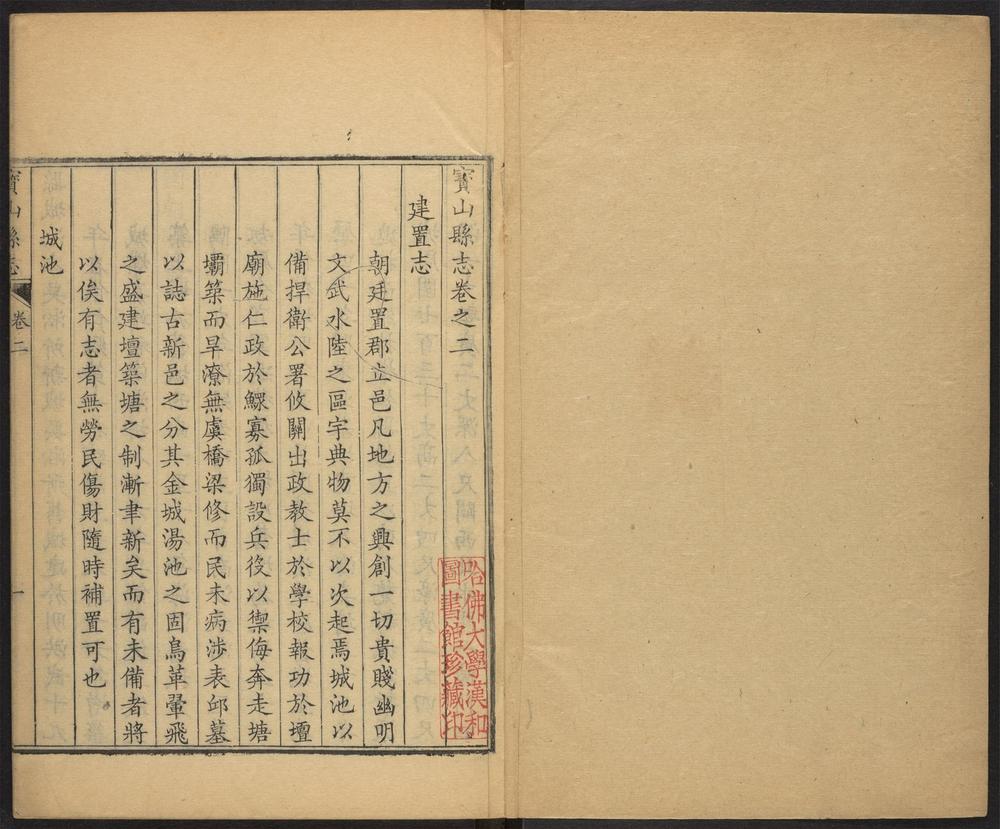 寶山縣志卷之二
建置志
朝廷置郡立邑凡地方之興創一切貴賤幽明
文武水陸之區宇典物莫不以次起焉城池以
備捍衛公署攸關出政教士於學校報功於壇
廟施仁政於鰥寡孤獨設兵役以禦侮奔走塘
壩築而旱潦無虞橋梁修而民未病涉表邱墓
以誌古新邑之分其金城湯池之固鳥革翬飛
之盛建壇築塘之制漸聿新矣而有未備者將
以俟有志者無勞民傷財隨時補置可也
城池
寶山縣志
卷二
一
哈佛大學漢和
圖書館珍藏印